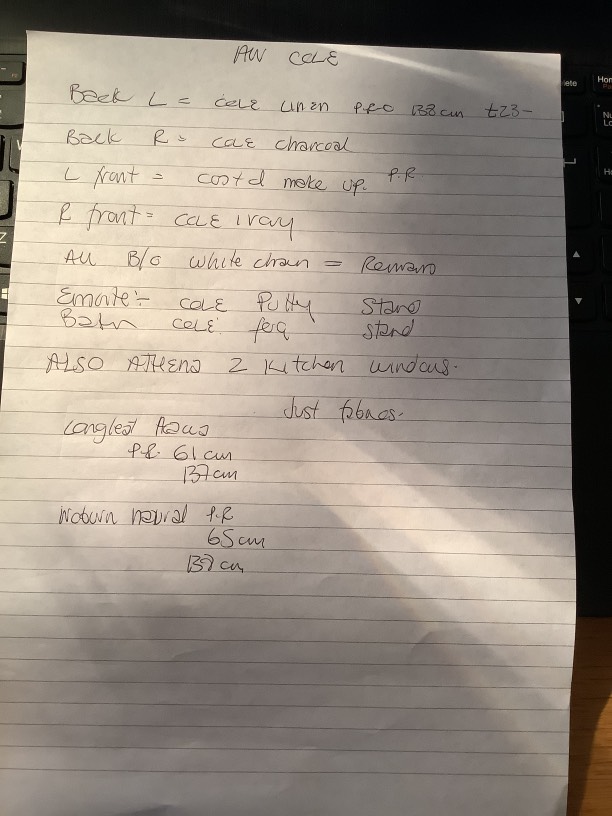 AW COLE
Back L = cole linen P.R.O 138cm £23-
Back R = cole charcoal
L front = cost d make up. P.R
R front = COLE ivory
All B/O white chain =
Ensuite :- COLE Putty Stand
Bath COLE stand
ALSO ATHENS 2 Kitchen windows.
Just fabrics.
Longleat
P.R. 61cm
137cm
Woburn neutral P.R
65cm
137cm